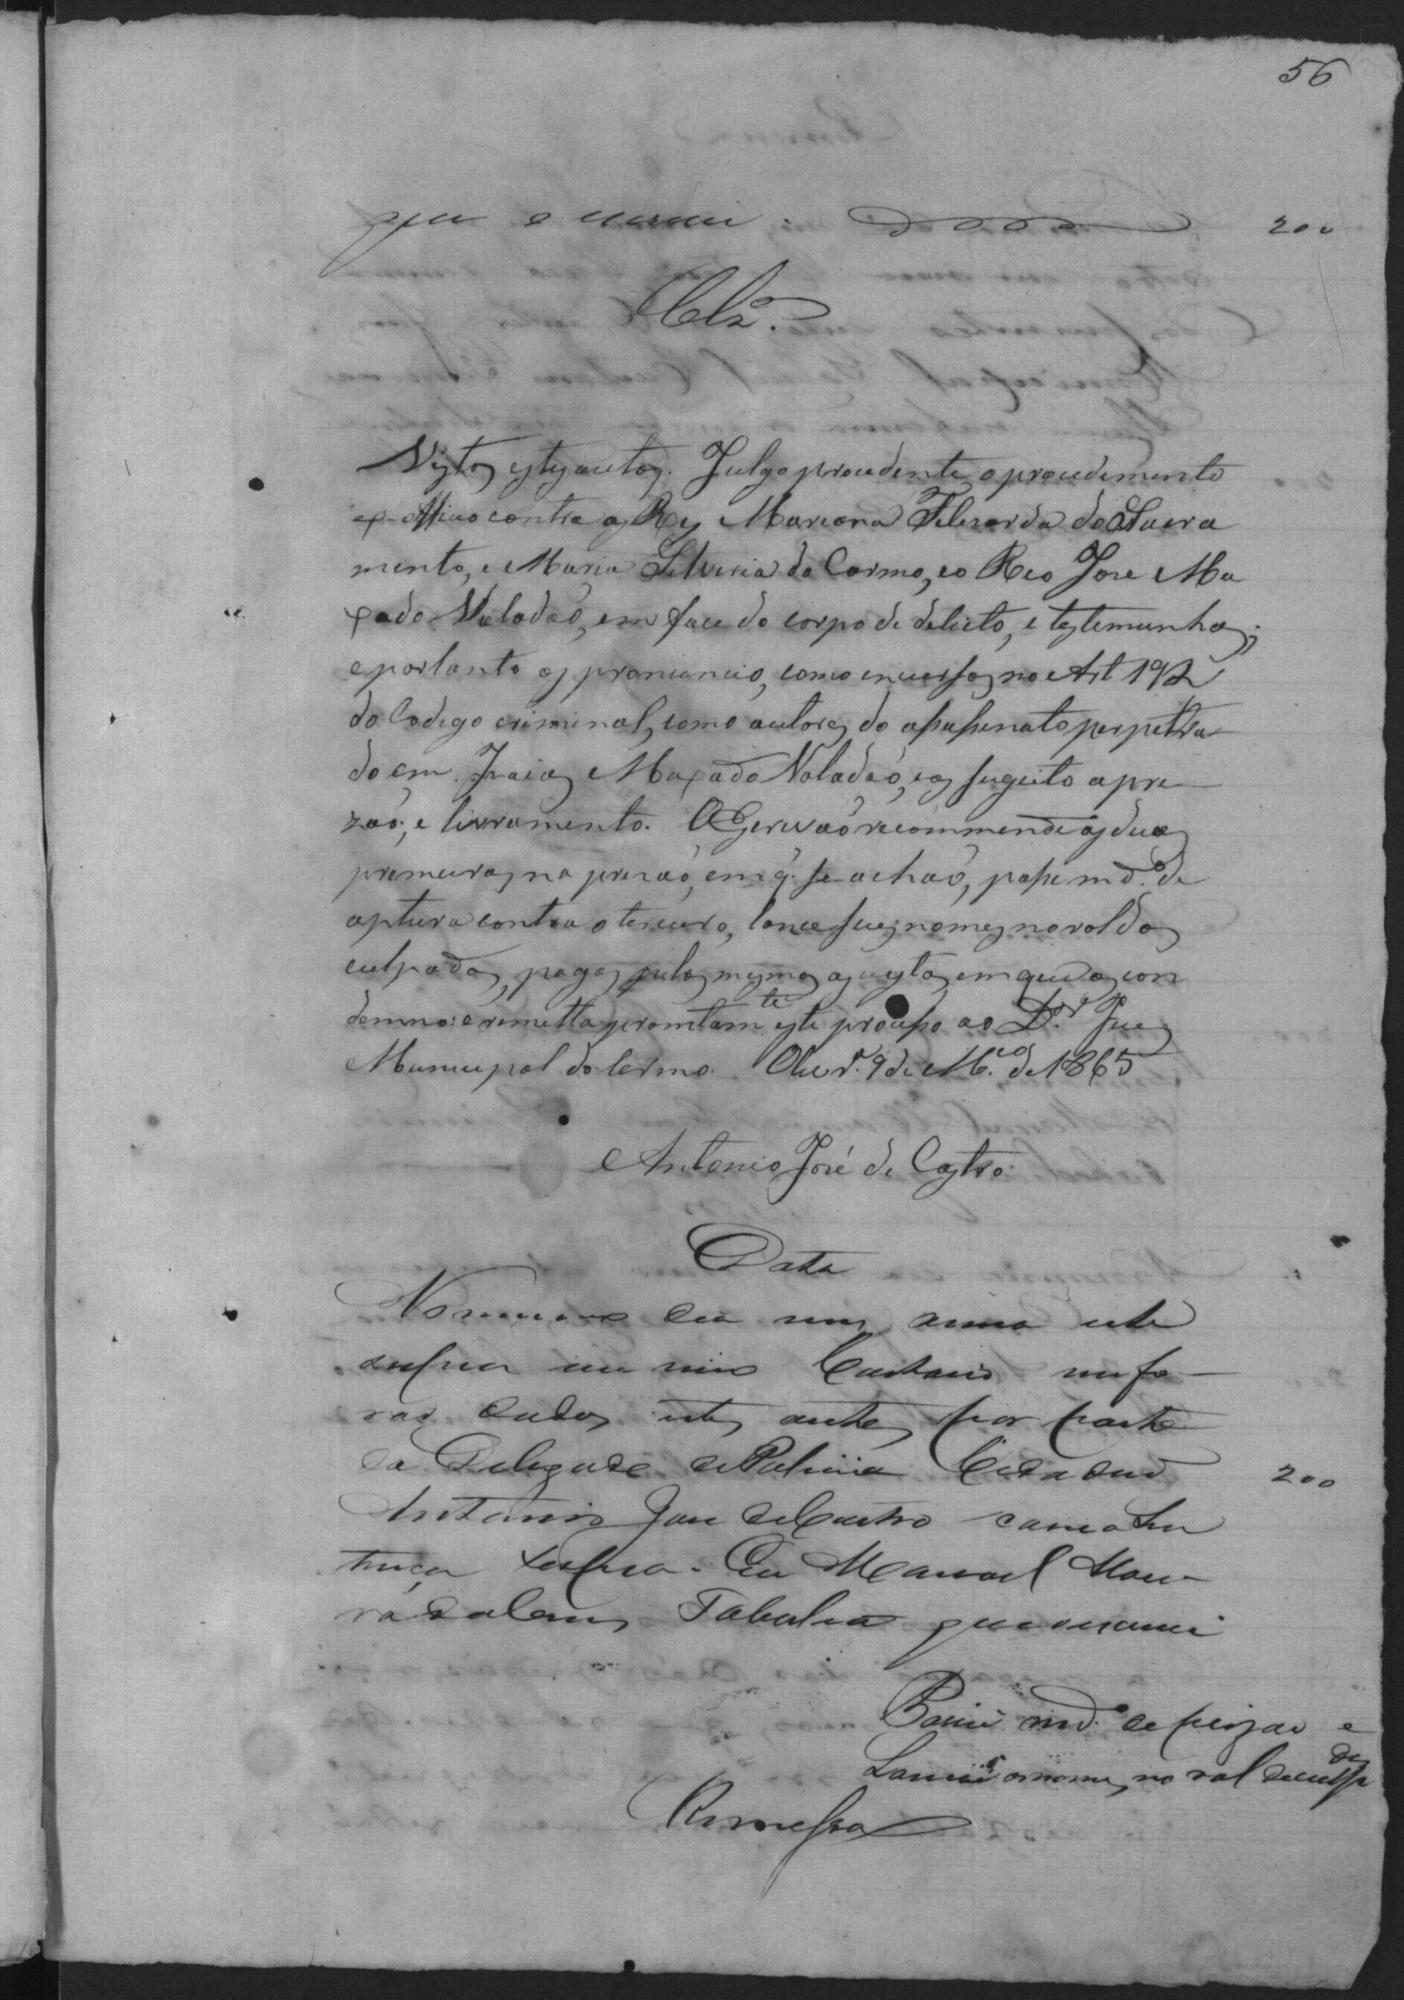 56
que o escrevi. 200
Clz.º
Vystos estes autos. Julgo procedente o procedimento
ex-officio contra as Res Mariana Felizarda do Sacra
mento, e Maria Silveria do Carmo, eo Reo Jose Ma
xado Valadaõ, em face do corpo de delicto, e testemunhas;
e portanto os pronuncio, como incursos no Art 192
do Codigo criminal, como autores do assassinato perpetra
do em Maxado Valadaõ, e os sugeito a pri
zaõ, e livramento. O Escrivaõ recommende as duas
primeiras na prizaõ, em q. se achaõ, passe md.º de
captura contra o terceiro, lance seus nomes no rol dos
culpados, pagas pelos mesmos as custas em que os con
demno: e remetta promtam.te este processo ao D.or Juiz
Municipal do termo. Oliv.ª 9 de M.ço de 1865
Antonio José de Castro.
Data
No mesmo dia mez anno este
em meo Cartorio me fo
raõ dados estes autos por parte
do Delegado de Policia Cidadaõ
Antonio Jose de Castro com a Sen
tença supra. Eu Manoel
Tabaliaõ que o escrevi
200
Passei md.º de prizaõ e
Lancei os nomes no rol dos culp
dos
Remessa